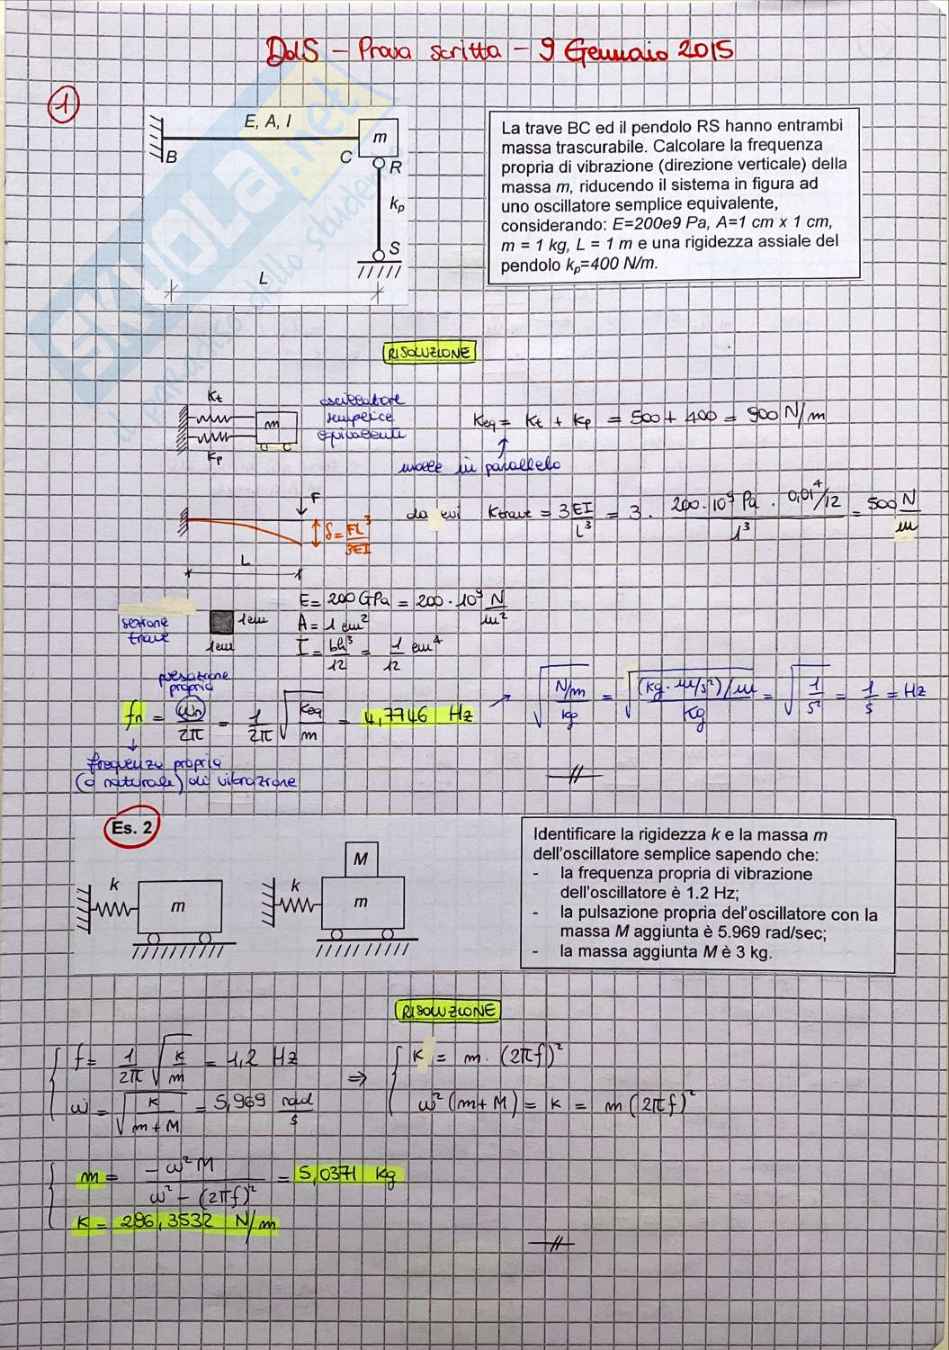 DdS - Prova scritta - 9 Gennaio 2015
1
E, A, I
m
B
C
R
k_p
S
L
La trave BC ed il pendolo RS hanno entrambi
massa trascurabile. Calcolare la frequenza
propria di vibrazione (direzione verticale) della
massa m, riducendo il sistema in figura ad
uno oscillatore semplice equivalente,
considerando: E=200e9 Pa, A=1 cm x 1 cm,
m = 1 kg, L = 1 m e una rigidezza assiale del
pendolo k_p=400 N/m.
SKUOLA.net
il paradiso dello studente
RISOLUZIONE
Kt
m
Kp
oscillatore
semplice
equivalente
Keq = Kt + Kp = 500 + 400 = 900 N/m
molle in parallelo
F
δ = FL³/3EI
L
da cui Ktrave = 3EI/L³ = 3 · 200·10⁹ Pa · 0,01⁴/12 / 1³ = 500 N/m
sezione
trave
1cm
1cm
E = 200 GPa = 200·10⁹ N/m²
A = 1 cm²
I = bh³/12 = 1/12 cm⁴
pulsazione
propria
fn = ωn/2π = 1/2π √(Keq/m) = 4,7746 Hz → √(N/m / kg) = √((kg·m/s²)/m / Kg) = √(1/s²) = 1/s = Hz
frequenza propria
(o naturale) di vibrazione
Es. 2
k
m
k
M
m
Identificare la rigidezza k e la massa m
dell'oscillatore semplice sapendo che:
- la frequenza propria di vibrazione
dell'oscillatore è 1.2 Hz;
- la pulsazione propria del'oscillatore con la
massa M aggiunta è 5.969 rad/sec;
- la massa aggiunta M è 3 kg.
RISOLUZIONE
f = 1/2π √(K/m) = 1,2 Hz ⇒ K = m·(2πf)²
ω = √(K/(m+M)) = 5,969 rad/s
ω²(m+M) = K = m(2πf)²
m = -ω²M / ω²-(2πf)² = 5,0371 Kg
K = 286,3532 N/m